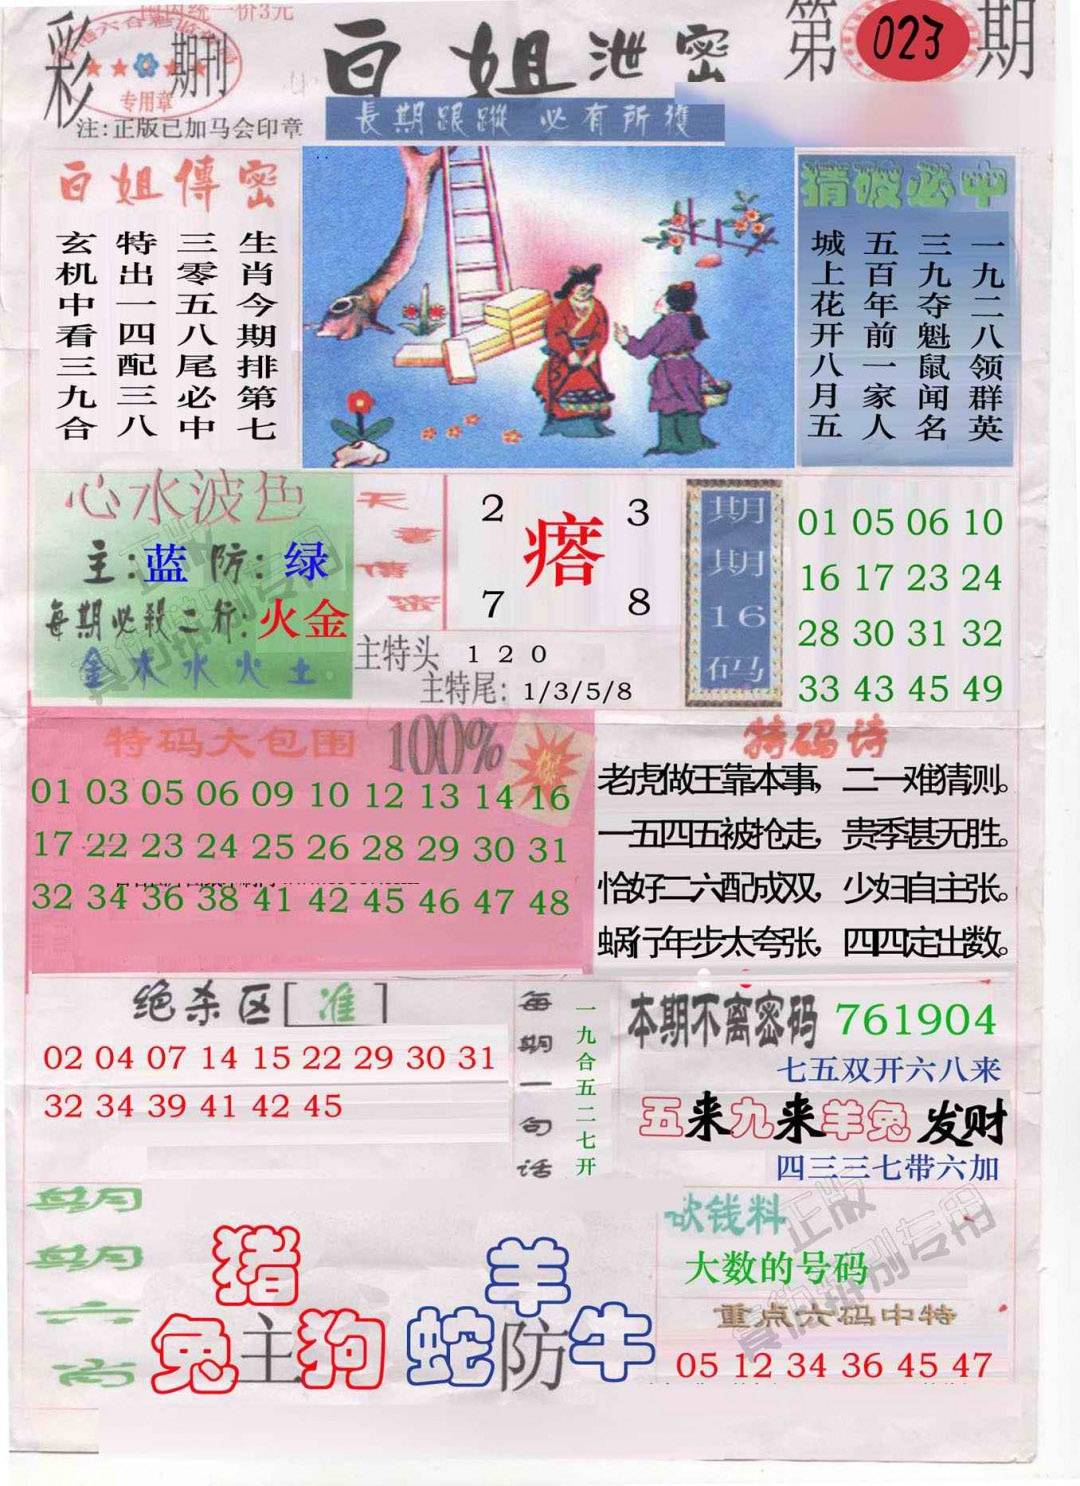 彩 期刊
专用章
注:正版已加马会印章
白姐泄密
第 023 期
長期跟蹤 必有所獲
白姐傳密
生肖今期排第七
三零五八尾必中
特出一四配三八
玄机中看三九合
猜破必中
一九二八领群英
三九夺魁鼠闻名
五百年前一家人
城上花开八月五
心水波色
主:蓝 防:绿
每期必殺二行:火金
金木水火土
天書傳密
2 3
瘩
7 8
主特头 1 2 0
主特尾: 1/3/5/8
期期16码
01 05 06 10
16 17 23 24
28 30 31 32
33 43 45 49
特码大包围 100%
01 03 05 06 09 10 12 13 14 16
17 22 23 24 25 26 28 29 30 31
32 34 36 38 41 42 45 46 47 48
特码诗
老虎做王靠本事，二一难猜测。
一五四五被抢走，贵季甚无胜。
恰好二六配成双，少妇自主张。
蜗行年步太夸张，四四定出数。
绝杀区[准]
02 04 07 14 15 22 29 30 31
32 34 39 41 42 45
每期一句话
一九合五二七开
本期不离密码 761904
七五双开六八来
五来九来羊兔 发财
四三三七带六加
期期六肖
猪
兔主狗
羊
蛇防牛
砍钱料
大数的号码
重点六码中特
05 12 34 36 45 47